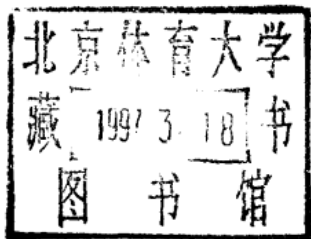 北京体育大学
藏 1997 3. 18 书
图书馆